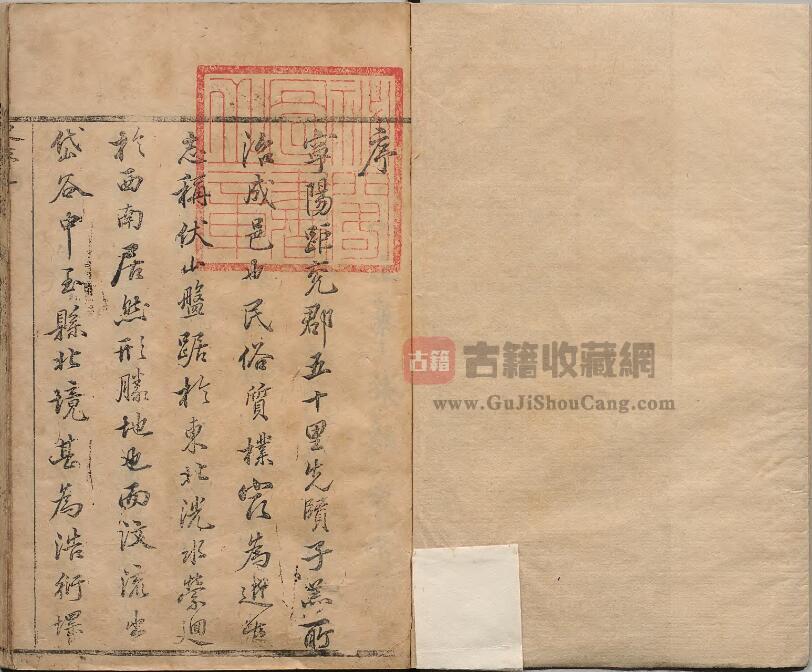 序
寧陽距兖郡五十里先賢子羔所
治成邑也民俗質樸
志稱伏山盤踞於東北洸水縈迴
於西南居然形勝地也而汶流出
岱谷中至縣北境甚為浩衍
古籍
古籍收藏網
www.GuJiShouCang.com